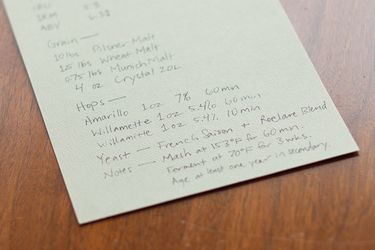 IBU
SRM
ABV 6.3%
Grain —
10 lbs Pilsner Malt
1.5 lbs Wheat Malt
0.75 lbs Munich Malt
4 oz Crystal 20L
Hops —
Amarillo 1 oz 7% 60 min
Willamette 1 oz 5.4% 60 min
Willamitte 1 oz 5.4% 10 min
Yeast — French Saison + Roeselare Blend
Notes — Mash at 153°F for 60 min.
Ferment at 70°F for 3 wks.
Age at least one year in secondary.